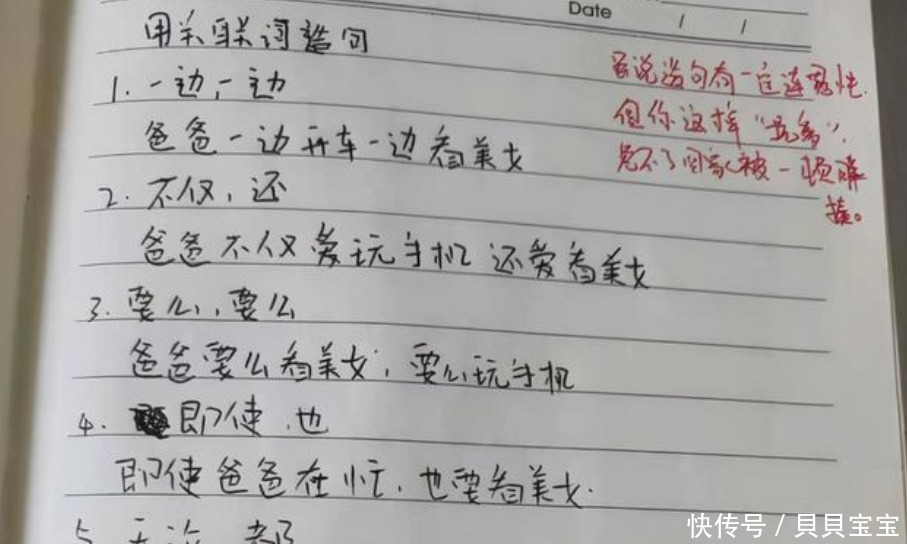 Date / /
用关联词造句
虽说造句有一定连贯性.
但你这样"坑爹",
免不了回家被一顿胖
揍。
1. 一边,一边
爸爸一边开车一边看美女
2. 不仅,还
爸爸不仅爱玩手机还爱看美女
3. 要么,要么
爸爸要么看美女,要么玩手机
4. 即使.也
即使爸爸在忙.也要看美女.
5 无论 都
快传号/貝貝宝宝